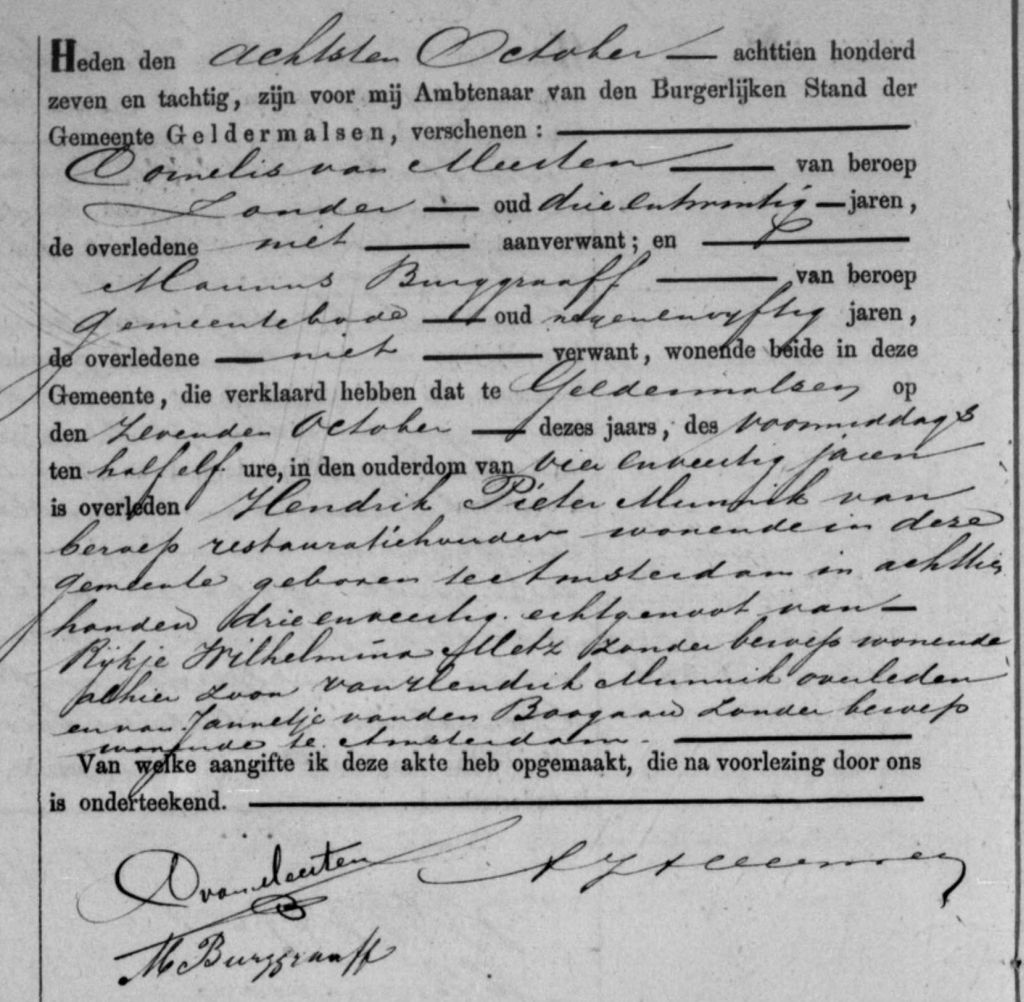 Heden den achtsten October — achttien honderd
zeven en tachtig, zijn voor mij Ambtenaar van den Burgerlijken Stand der
Gemeente Geldermalsen, verschenen :
Cornelis van Meerten — van beroep
Zonder — oud drie entwintig — jaren,
de overledene niet — aanverwant; en
Marinus Burggraaff — van beroep
Gemeentebode — oud negenenvyftig jaren,
de overledene — niet — verwant, wonende beide in deze
Gemeente, die verklaard hebben dat te Geldermalsen op
den Zevenden October — dezes jaars, des voormiddags
ten half elf ure, in den ouderdom van vier enveertig jaren
is overleden Hendrik Pieter Munnik van
beroep restauratiehouder wonende in deze
gemeente geboren te Amsterdam in achttien
honderd drieenveertig. echtgenoot van —
Rijkje Wilhelmina Metz zonder beroep wonende
alhier zoon van Hendrik Munnik overleden
en van Jannetje van den Boogaard zonder beroep
wonende te Amsterdam. —
Van welke aangifte ik deze akte heb opgemaakt, die na voorlezing door ons
is onderteekend. —
C van Meerten
M Burggraaff